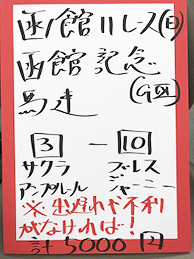 函館11レース(日)
函館記念
馬連 (GⅢ)
3 － 10
サクラ ブレス
アンプルール ジャーニー
※出遅れや不利
がなければ!
計5000円